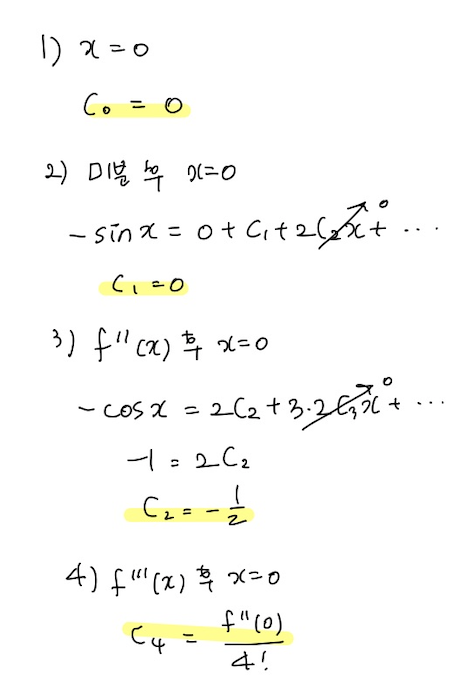 1) x = 0
C₀ = 0
2) 미분 후 x=0
- sin x = 0 + C₁ + 2C₂x + ...
0
C₁ = 0
3) f''(x) 후 x=0
- cos x = 2C₂ + 3·2C₃x + ...
0
-1 = 2C₂
C₂ = - 1/2
4) f'''(x) 후 x=0
C₄ = f''(0) / 4!